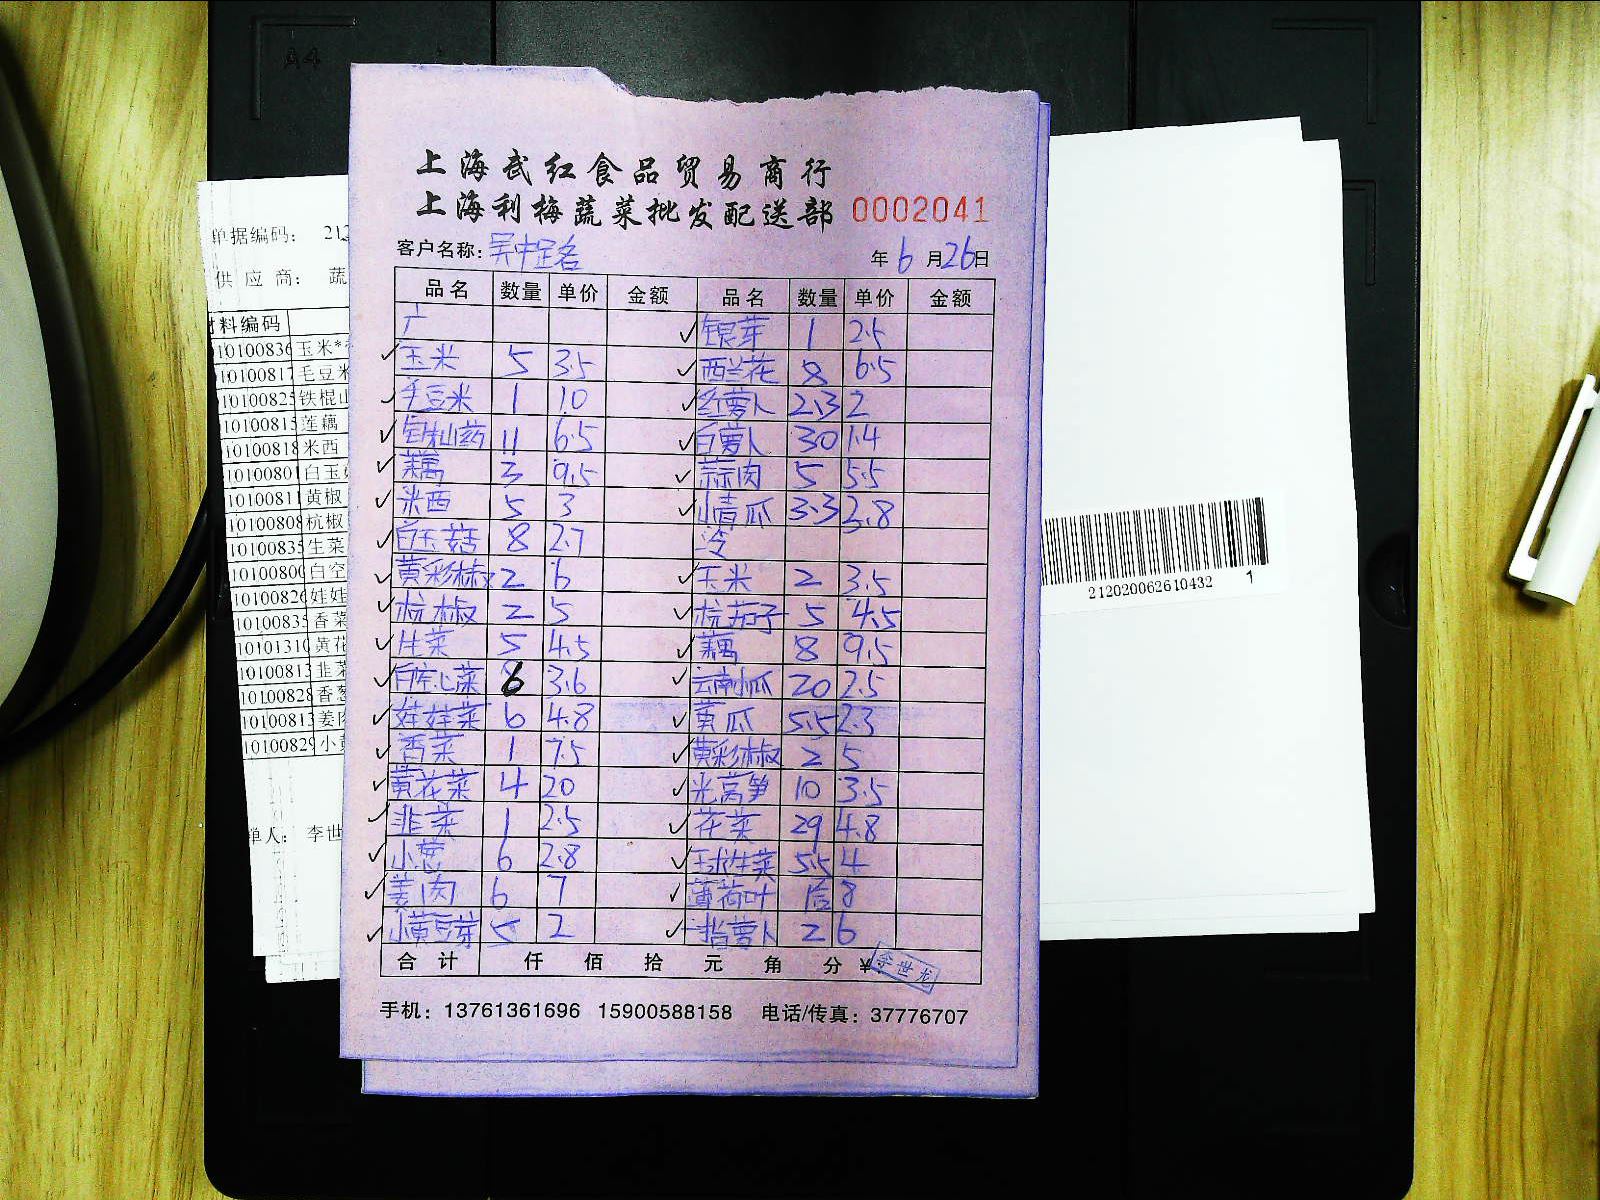 A4
上海武红食品贸易商行
上海利梅蔬菜批发配送部 0002041
客户名称: 吴中 年 6 月 26 日
品名 数量 单价 金额 品名 数量 单价 金额
广 银芽 1 2.5
玉米 5 3.5 西兰花 8 6.5
毛豆米 1 10 红萝卜 2.3 2
铁杆山药 11 6.5 白萝卜 30 1.4
藕 3 9.5 蒜肉 5 5.5
米西 5 3 小青瓜 3.3 3.8
白玉菇 8 2.7 冷
黄彩椒 2 6 玉米 2 3.5
杭椒 2 5 杭茄子 5 4.5
生菜 5 4.5 藕 8 9.5
白空心菜 6 3.6 云南小瓜 20 2.5
娃娃菜 6 4.8 黄瓜 5.5 2.3
香菜 1 7.5 黄彩椒 2 5
黄花菜 4 20 光莴笋 10 3.5
韭菜 1 2.5 花菜 29 4.8
小葱 6 2.8 球生菜 5.5 4
姜肉 6 7 薄荷叶 1 8
小黄豆芽 5 2 手指萝卜 2 6
合计 仟 佰 拾 元 角 分 ¥
李世龙
手机: 13761361696 15900588158 电话/传真: 37776707
单据编码: 212
供应商: 蔬
材料编码
10100836 玉米*
10100817 毛豆米
10100825 铁棍山
10100815 莲藕
10100818 米西
10100801 白玉
10100811 黄椒
10100808 杭椒
10100835 生菜
10100800 白空
10100826 娃娃
10100835 香菜
10101310 黄花
10100813 韭菜
10100828 香葱
10100813 姜肉
10100829 小黄
单人: 李世
212020062610432 1